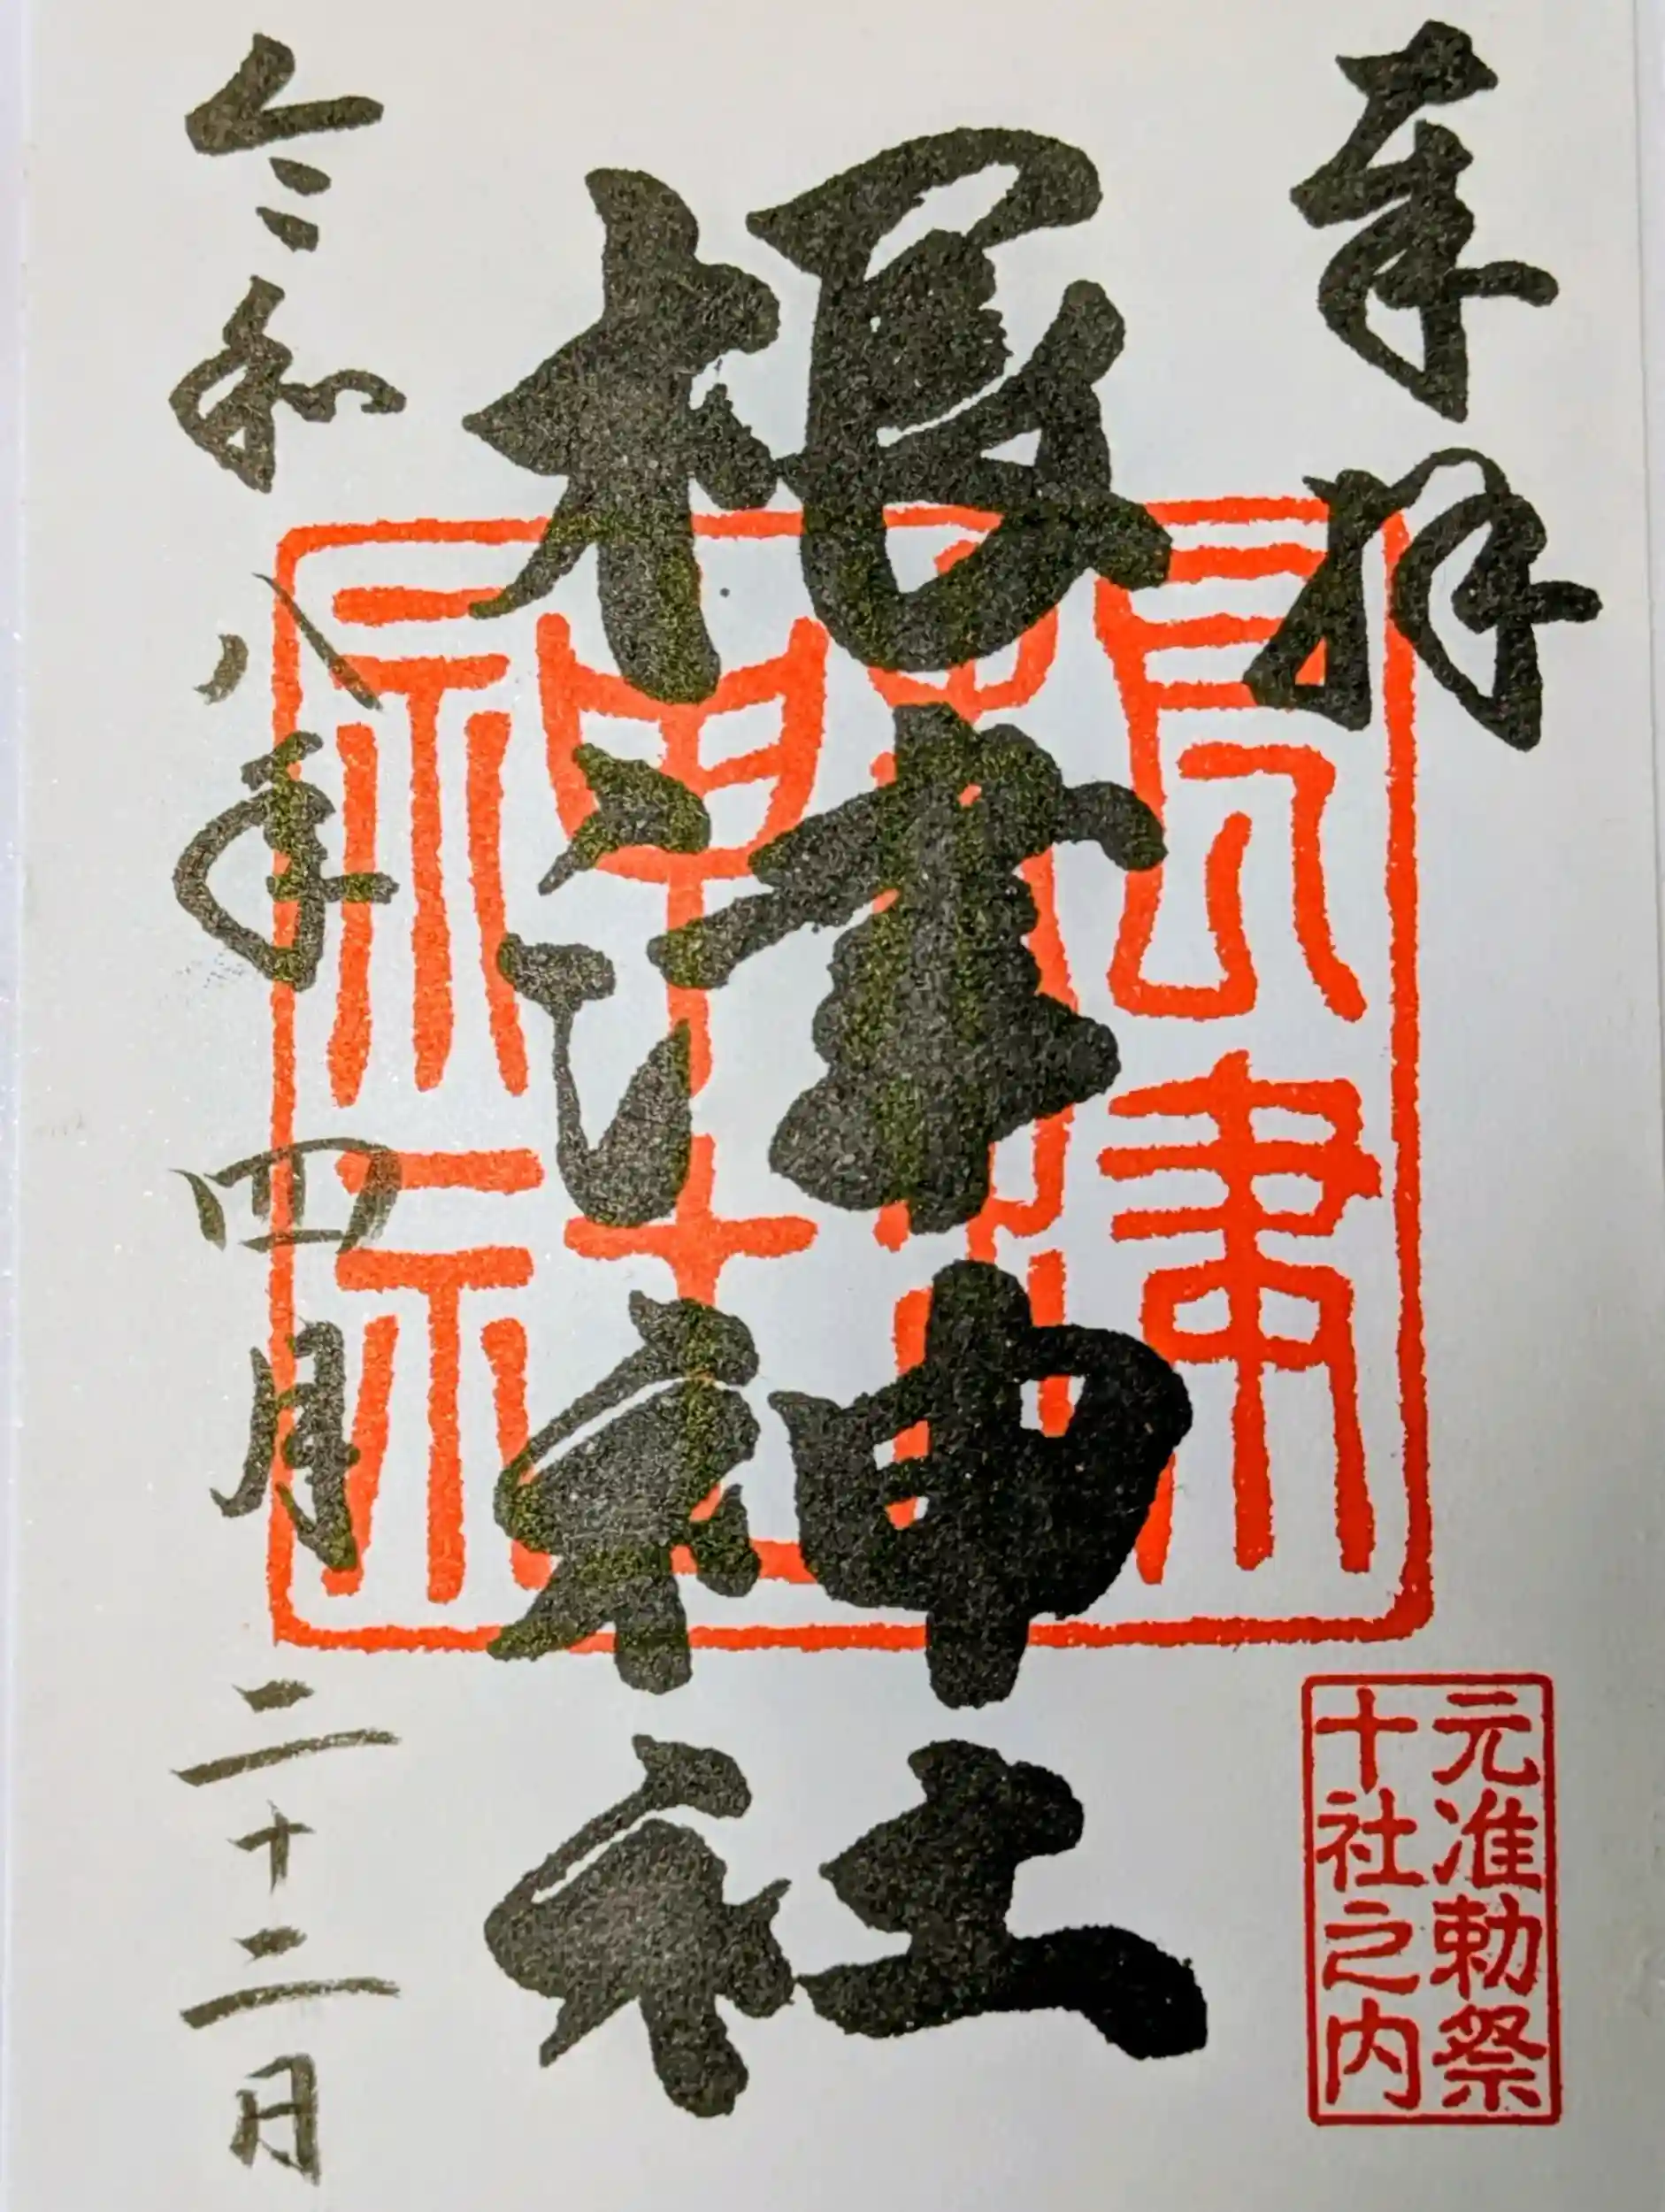 奉拝
根津神社
令和八年四月二十二日
根津
神社
元准勅祭
十社之内